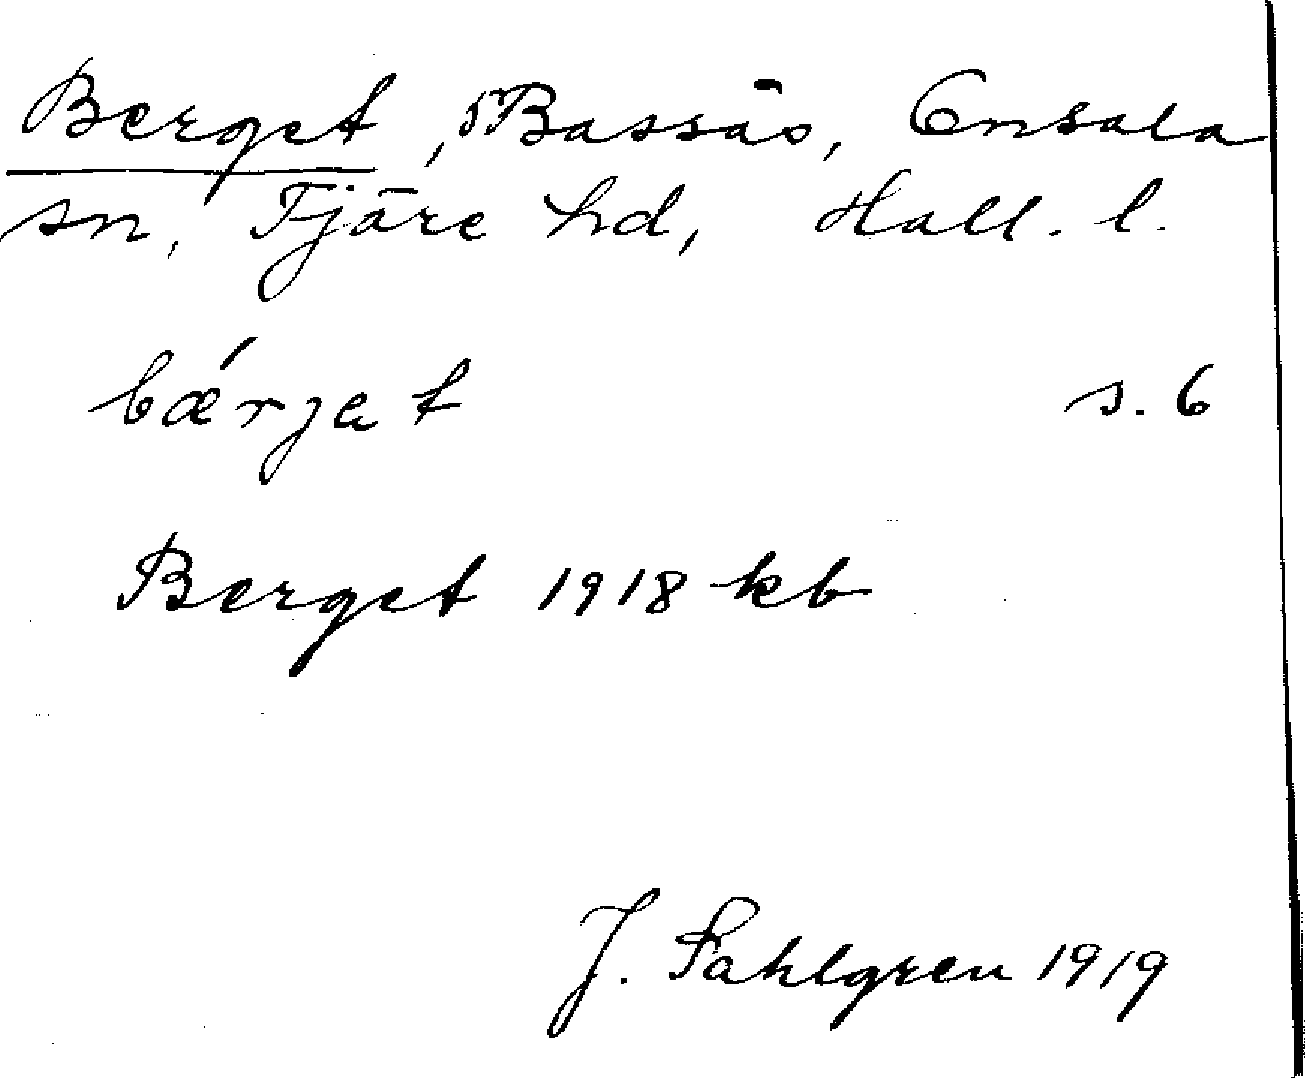 Berget, 5 Bassås, Onsala
sn, Fjäre hd, Hall. l.
bǽrjat s. 6
Berget 1918 kb
J. Sahlgren 1919